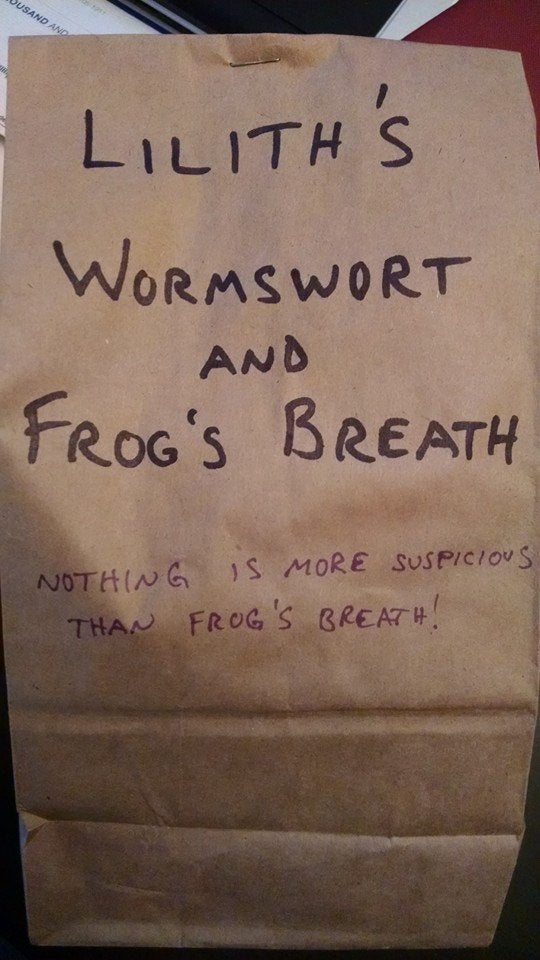 OUSAND AND
LILITH'S
WORMSWORT
AND
FROG'S BREATH
NOTHING IS MORE SUSPICIOUS
THAN FROG'S BREATH!